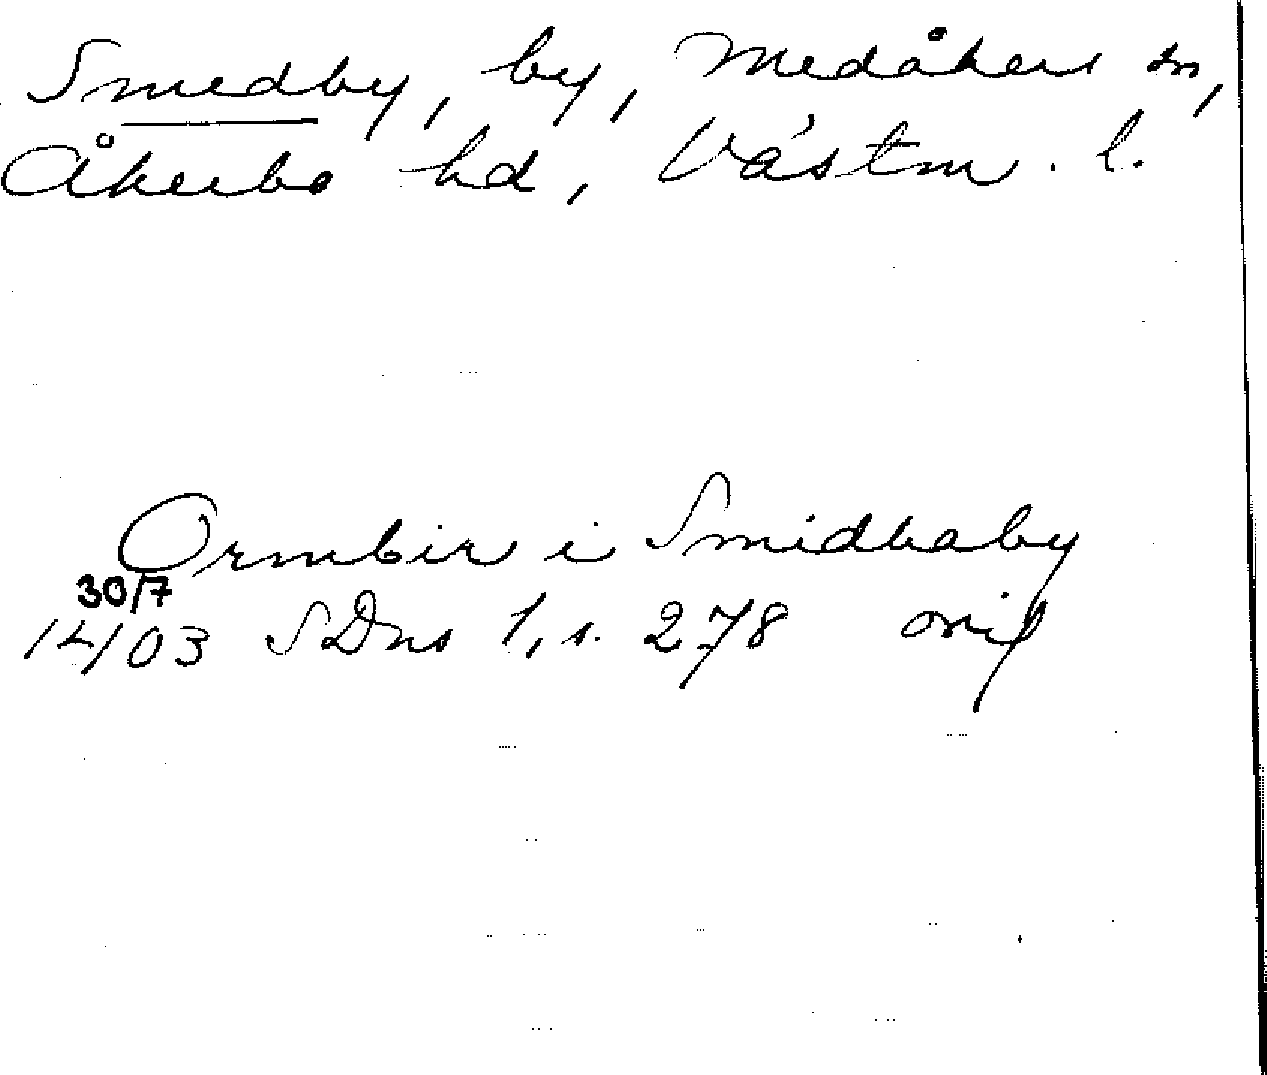 Smedby, by, Medåkers sn,
Åkerbo hd, Västm. l.
Ormbir i Smidhaby
30/7
14/03 SDns 1, s. 278 orig